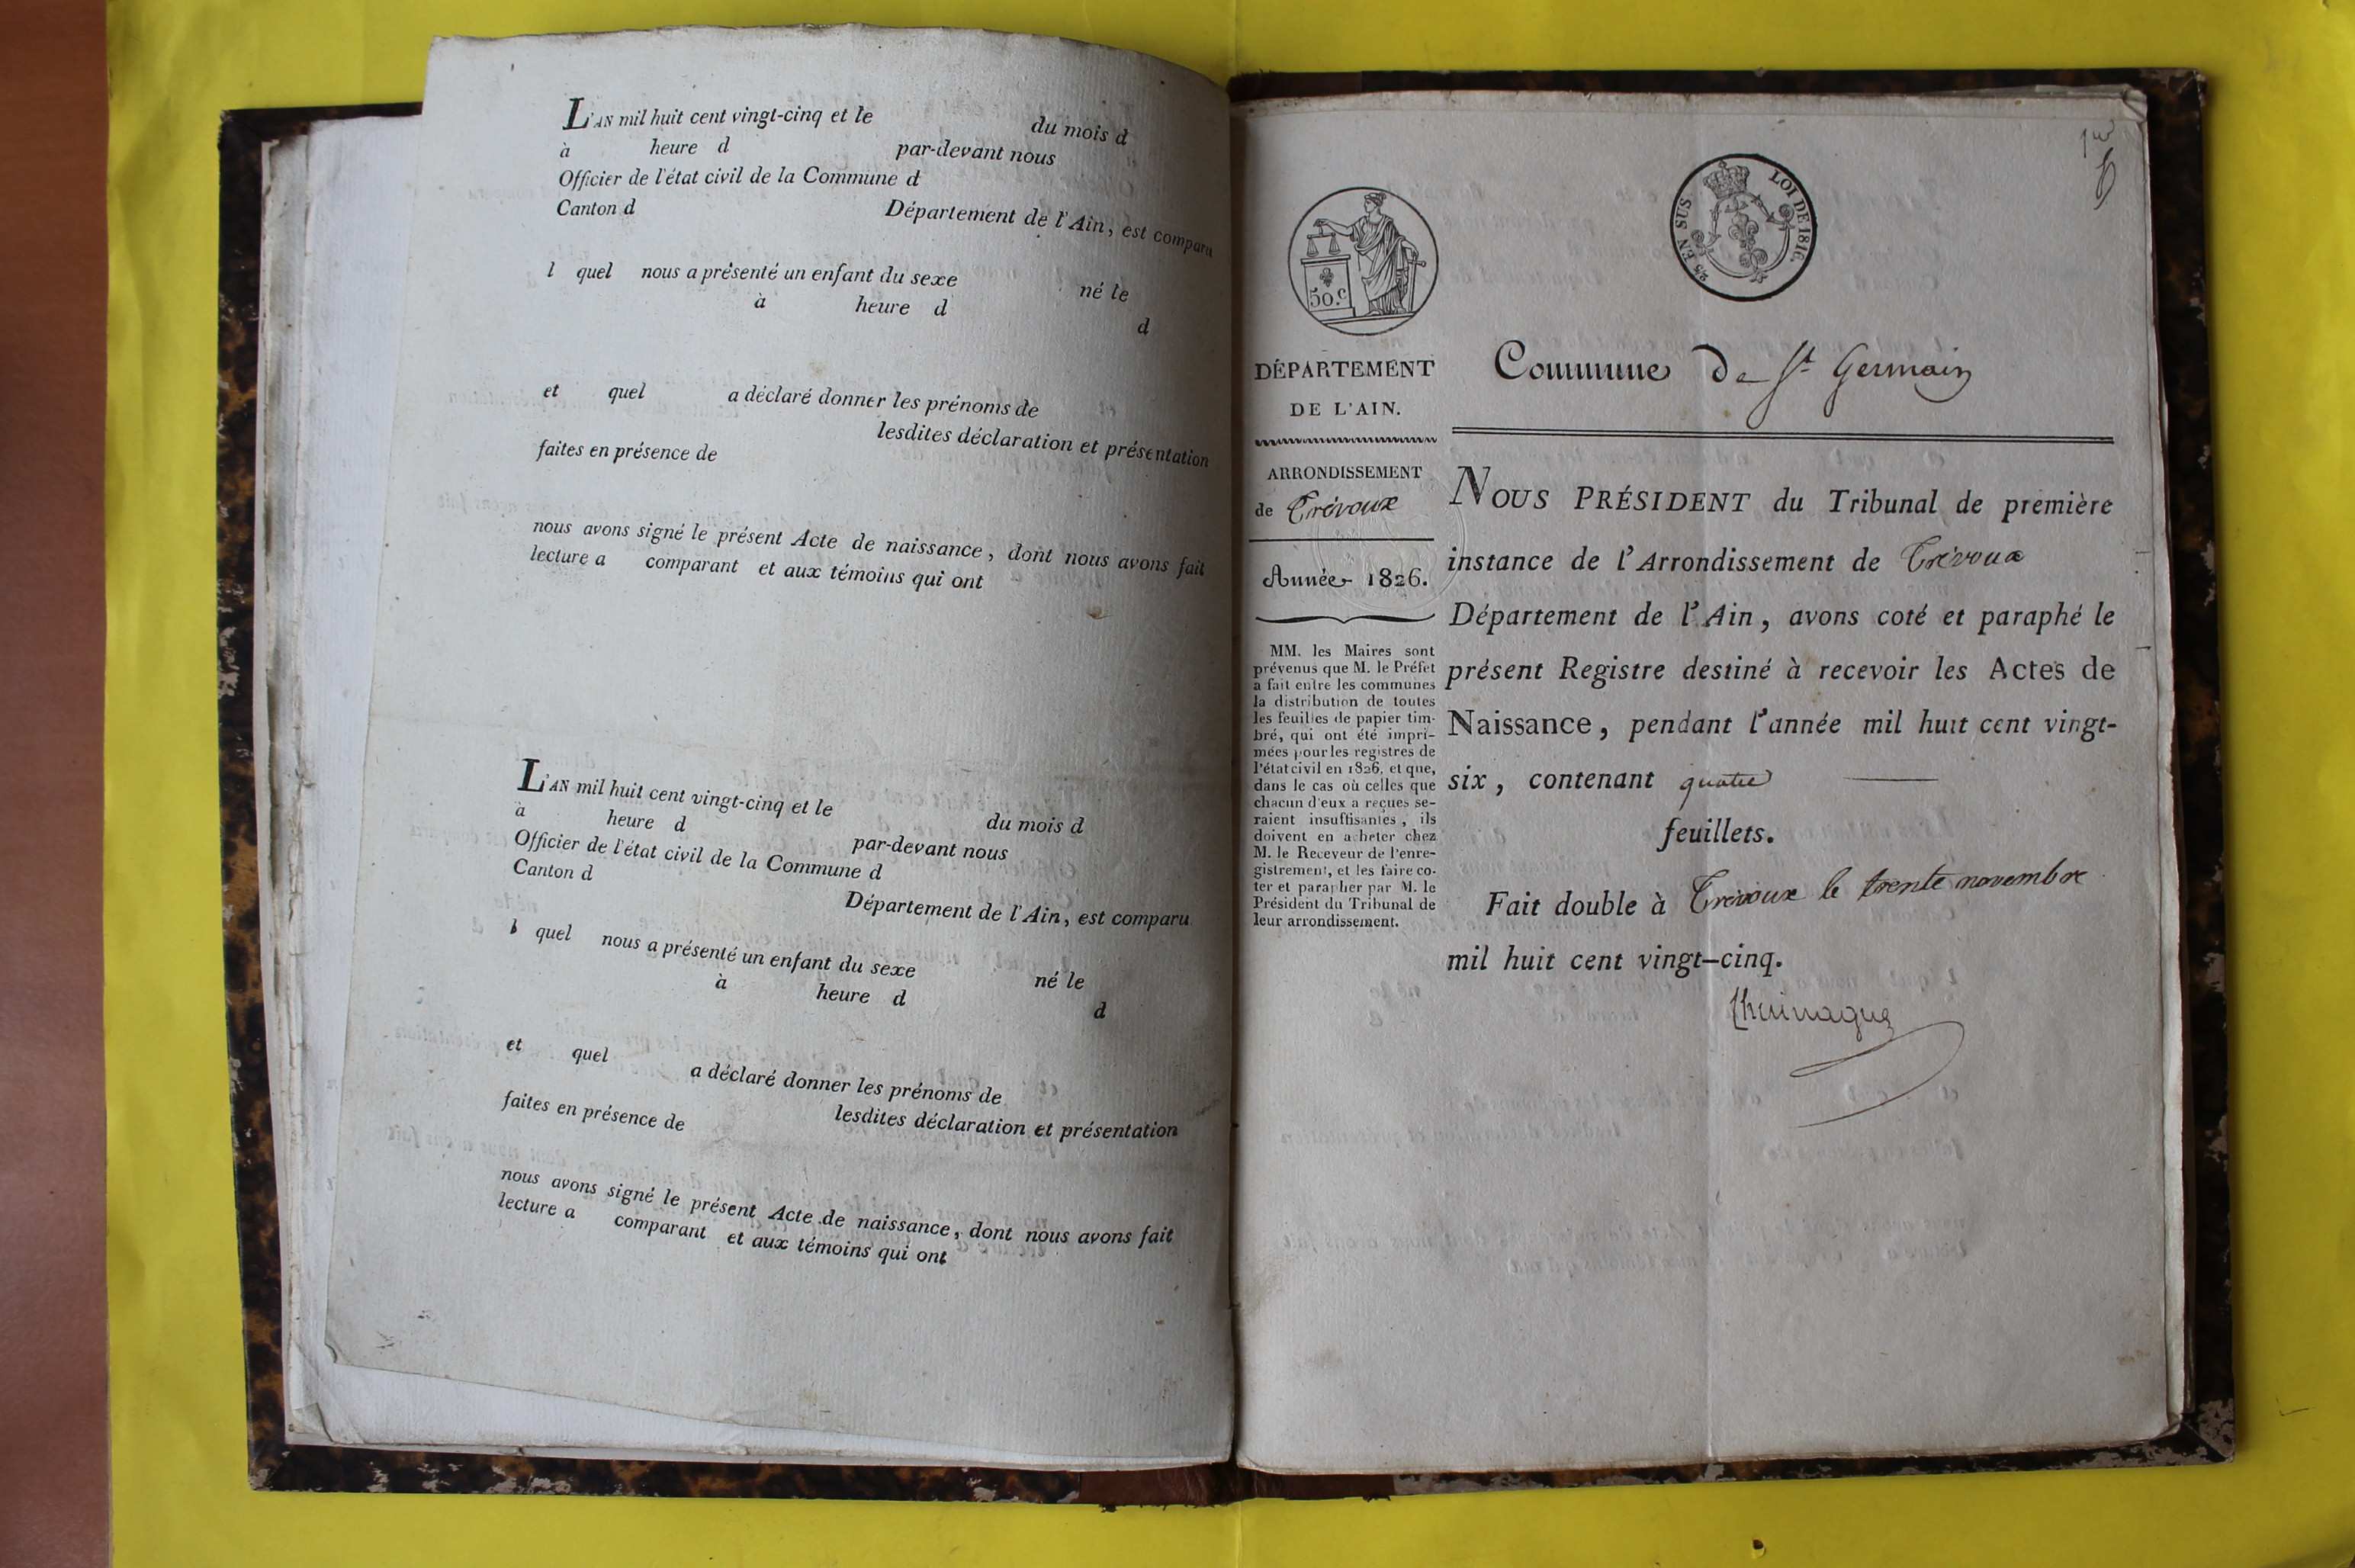 L'AN mil huit cent vingt-cinq et le du mois d
à heure d par-devant nous
Officier de l'état civil de la Commune d
Canton d Département de l'Ain, est comparu
l quel nous a présenté un enfant du sexe né le
à heure d
d
et quel a déclaré donner les prénoms de
lesdites déclaration et présentation
faites en présence de
nous avons signé le présent Acte de naissance, dont nous avons fait
lecture a comparant et aux témoins qui ont
L'AN mil huit cent vingt-cinq et le du mois d
à heure d par-devant nous
Officier de l'état civil de la Commune d
Canton d Département de l'Ain, est comparu
l quel nous a présenté un enfant du sexe né le
à heure d
d
et quel a déclaré donner les prénoms de
lesdites déclaration et présentation
faites en présence de
nous avons signé le présent Acte de naissance, dont nous avons fait
lecture a comparant et aux témoins qui ont
50.c
25 EN SUS LOI DE 1816.
DÉPARTEMENT
DE L'AIN.
ARRONDISSEMENT
de Trévoux
Année 1826.
MM. les Maires sont
prévenus que M. le Préfet
a fait entre les communes
la distribution de toutes
les feuilles de papier tim-
bré, qui ont été impri-
mées pour les registres de
l'état civil en 1826, et que,
dans le cas où celles que
chacun d'eux a reçues se-
raient insuffisantes, ils
doivent en acheter chez
M. le Receveur de l'enre-
gistrement, et les faire co-
ter et parapher par M. le
Président du Tribunal de
leur arrondissement.
Commune De St Germain
NOUS PRÉSIDENT du Tribunal de première
instance de l'Arrondissement de Trévoux
Département de l'Ain, avons coté et paraphé le
présent Registre destiné à recevoir les Actes de
Naissance, pendant l'année mil huit cent vingt-
six, contenant quatre
feuillets.
Fait double à Trévoux le trente novembre
mil huit cent vingt-cinq.